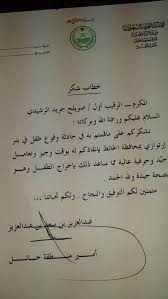 خطاب شكر
المكرم الرقيب أول / صويلح جريد الرشيدي
السلام عليكم ورحمة الله وبركاته
نشكركم على ماقمتم به في حادثة وقوع طفل في بئر
إرتوازي بمحافظة الحائط بإنقاذكم له بوقت وجيز وتعامل
جيد وحرفية عالية مما ساعد ذلك بإخراج الطفل وهو
بصحة جيدة ولله الحمد
متمنين لكم التوفيق والنجاح . ولكم تحياتنا
عبدالعزيز بن سعد بن عبدالعزيز
أمير منطقة حائل